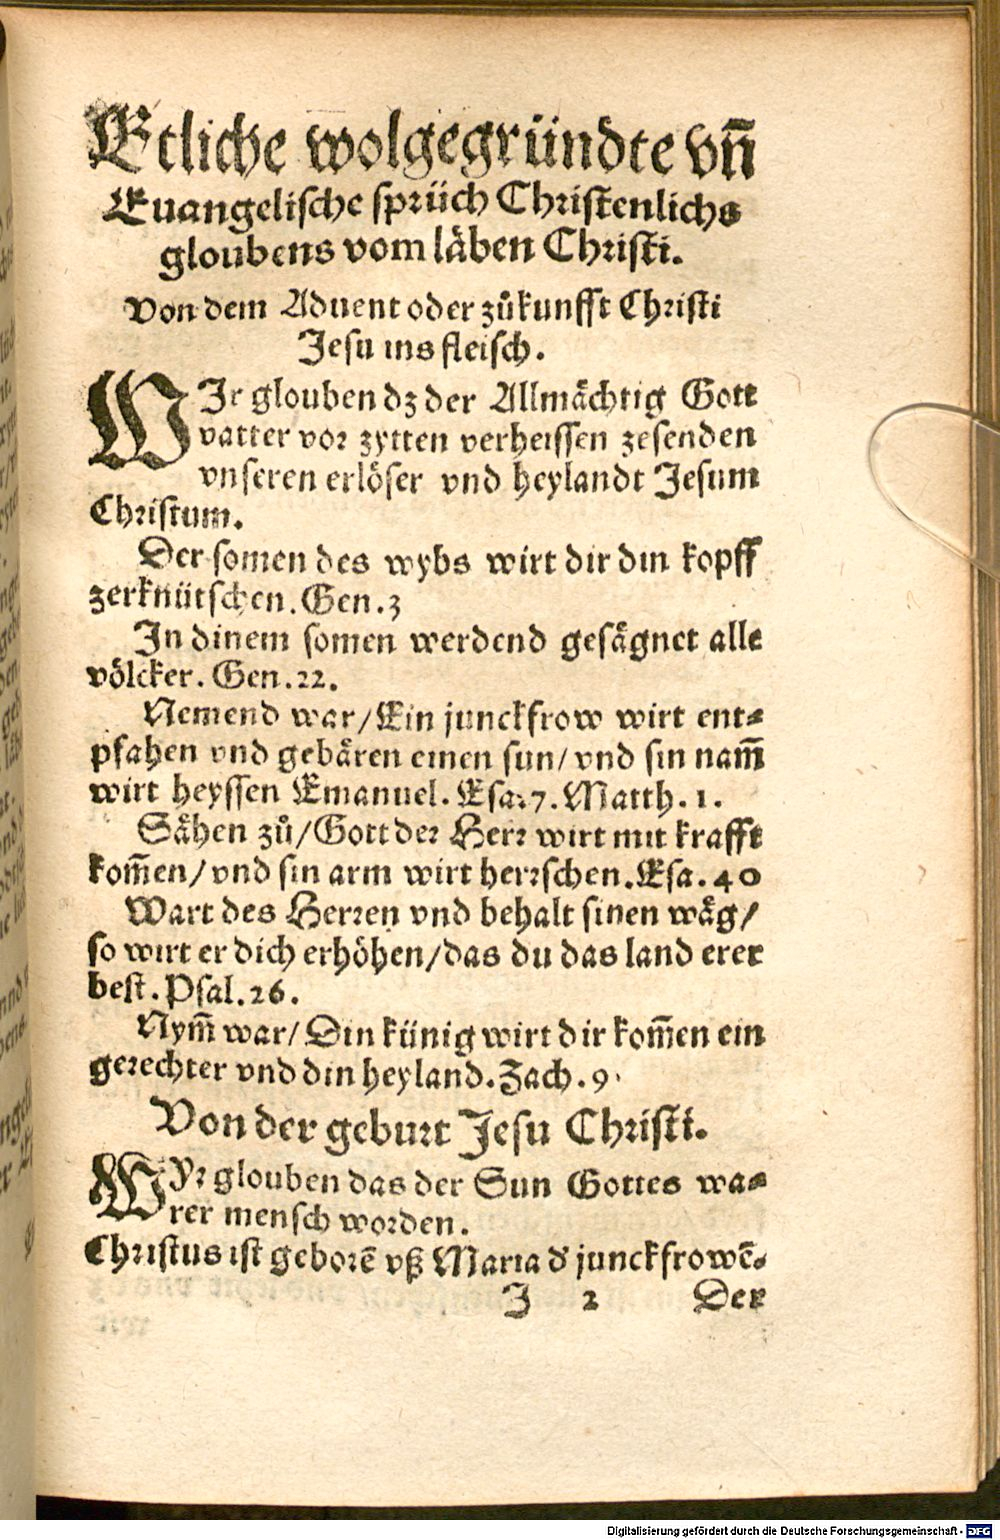 Etliche wolgegründte vn̄
Euangelische sprüch Christenlichs
gloubens vom läben Christi.
Von dem Aduent oder zůkunfft Christi
Jesu ins fleisch.
WJr glouben dz der Allmächtig Gott
vatter vor zytten verheissen zesenden
vnseren erlöser vnd heylandt Jesum
Christum.
Der somen des wybs wirt dir din kopff
zerknütschen. Gen. 3
In dinem somen werdend gesägnet alle
völcker. Gen. 22.
Nemend war/ Ein junckfrow wirt ent⸗
pfahen vnd gebären einen sun/ vnd sin nam̄
wirt heyssen Emanuel. Esa. 7. Matth. 1.
Sähen zů/ Gott der Herr wirt mit krafft
kom̄en/ vnd sin arm wirt herrschen. Esa. 40
Wart des Herren vnd behalt sinen wäg/
so wirt er dich erhöhen/ das du das land erer
best. Psal. 26.
Nym̄ war/ Din künig wirt dir kom̄en ein
gerechter vnd din heyland. Zach. 9.
Von der geburt Jesu Christi.
WYr glouben das der Sun Gottes wa⸗
rer mensch worden.
Christus ist geborē vß Maria d' junckfrowē.
J 2 Der
Digitalisierung gefördert durch die Deutsche Forschungsgemeinschaft - DFG